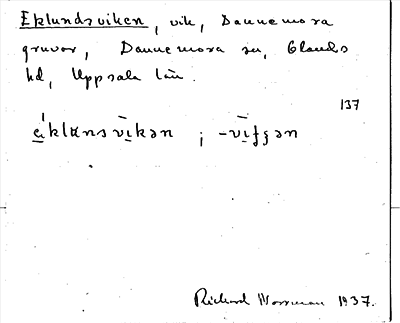 Eklundsviken, vik, Dannemora
gruvor, Dannemora sn, Olands
hd, Uppsala län.
137
e̍klɯnsvīkən ; -vīfgən
Richard 1937.